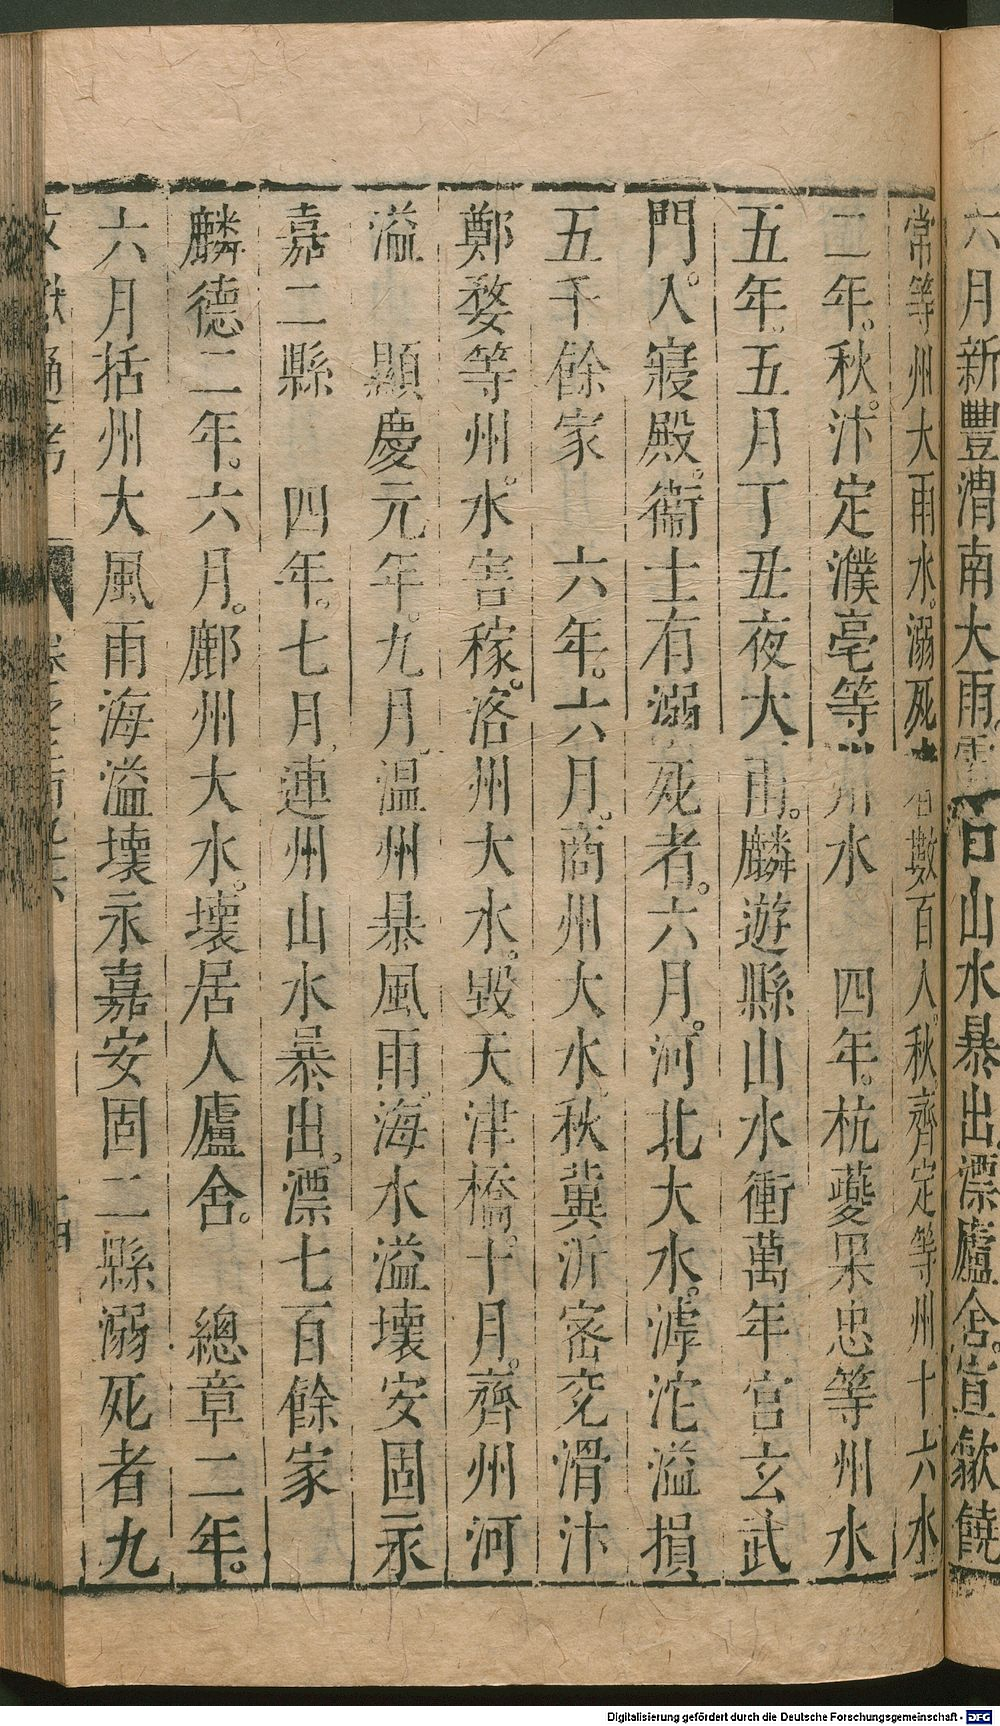 六月新豐渭南大雨
日山水暴出漂廬舍宣歙饒
常等州大雨水溺死
者數百人秋齊定等州十六水
二年秋汴定濮亳等州水　四年杭夔果忠等州水
五年五月丁丑夜大雨麟遊縣山水衝萬年宮玄武
門入寢殿衞士有溺死者六月河北大水滹沱溢損
五千餘家　六年六月商州大水秋冀沂密兗滑汴
鄭婺等州水害稼洛州大水毀天津橋十月齊州河
溢　顯慶元年九月温州暴風雨海水溢壞安固永
嘉二縣　四年七月連州山水暴出漂七百餘家
麟德二年六月鄜州大水壞居人廬舍　總章二年
六月括州大風雨海溢壞永嘉安固二縣溺死者九
Digitalisierung gefördert durch die Deutsche Forschungsgemeinschaft - DFG